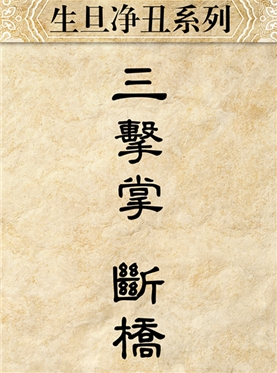 生旦净丑系列
三擊掌 斷橋